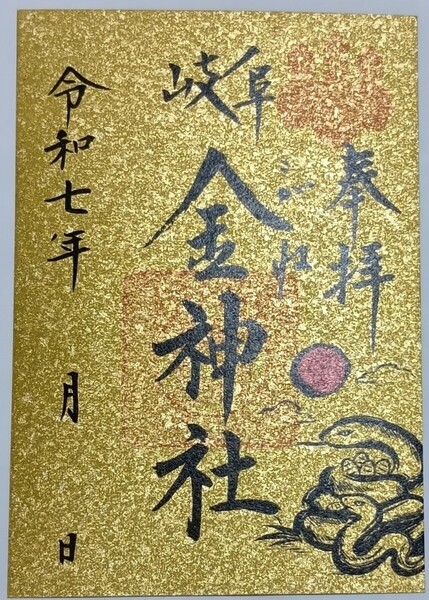 奉拝
岐阜
金神社
令和七年 月 日